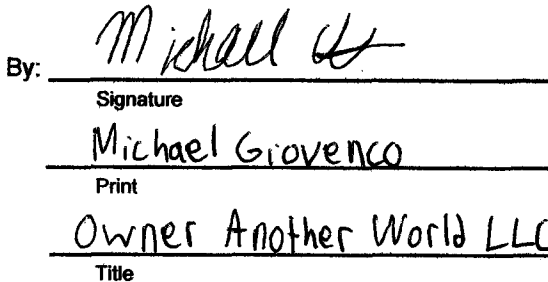 By: Michael
Signature
Michael Giovenco
Print
Owner Another World LLC
Title